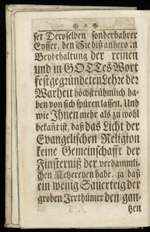 ser Deroselben sonderbahrer
Eyffer, den Sie bis anhero in
Beybehaltung der reinen
und in GOTTes Wort
fest gegründeten Lehre der
Warheit höchstrühmlich ha-
ben von sich spüren lassen. Und
wie Ihnen mehr als zu wohl
bekañt ist, daß das Licht der
Evangelischen Religion
keine Gemeinschafft der
Finsterniß der verdammli-
chen Ketzereyen habe, ja daß
ein wenig Sauerteig der
groben Irrthümer den gan-
tzen